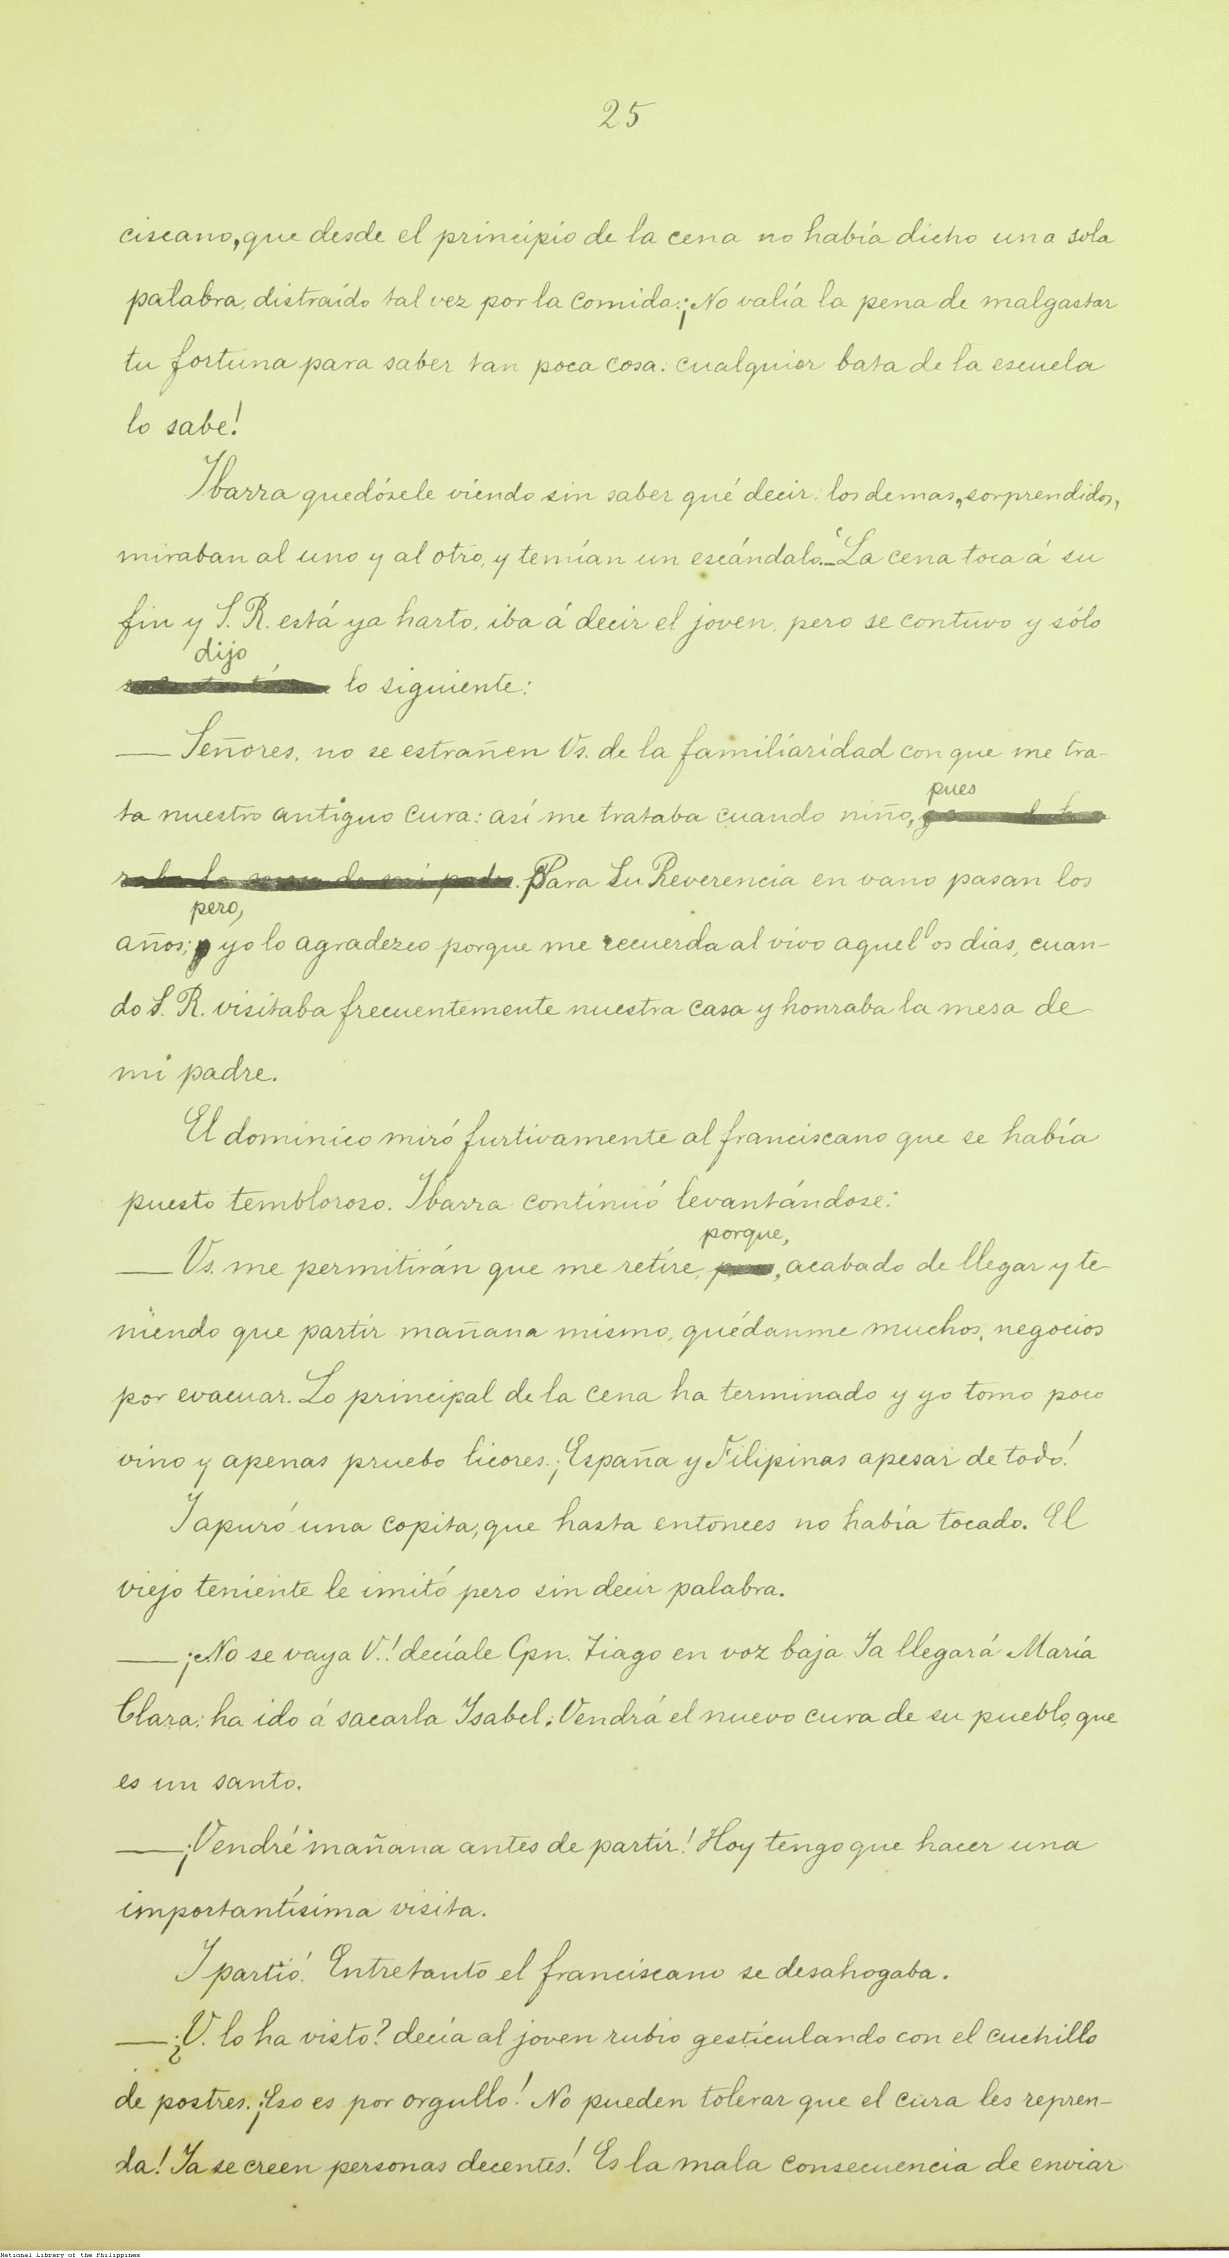 25
ciscano, que desde el principio de la cena no había dicho una sola
palabra, distraído tal vez por la comida: ¡No valía la pena de malgastar
tu fortuna para saber tan poca cosa: cualquier bata de la escuela
lo sabe!
Ibarra quedósele viendo sin saber qué decir: los demas, sorprendidos,
miraban al uno y al otro, y temían un escándalo._ "La cena toca á su
fin y S. R. está ya harto, iba á decir el joven, pero se contuvo y sólo
dijo
lo siguiente:
— Señores, no se estrañen Vs. de la familiaridad con que me tra-
pues
ta nuestro antiguo Cura: así me trataba cuando niño,
Para Su Reverencia en vano pasan los
pero,
años; yo lo agradezco porque me recuerda al vivo aquellos dias, cuan-
do S. R. visitaba frecuentemente nuestra casa y honraba la mesa de
mi padre.
El dominico miró furtivamente al franciscano que se había
puesto tembloroso. Ibarra continuó levantándose:
porque,
— Vs. me permitirán que me retire, acabado de llegar y te
niendo que partir mañana mismo, quédanme muchos, negocios
por evacuar. Lo principal de la cena ha terminado y yo tomo poco
vino y apenas pruebo licores. ¡España y Filipinas apesar de todo!
Y apuró una copita, que hasta entonces no había tocado. El
viejo teniente le imitó pero sin decir palabra.
— ¡No se vaya V.! decíale Cpn. Tiago en voz baja Ya llegará María
Clara: ha ido á sacarla Isabel. Vendrá el nuevo cura de su pueblo, que
es un santo.
— ¡Vendré mañana antes de partir! Hoy tengo que hacer una
importantísima visita.
Y partió. Entretanto el franciscano se desahogaba.
— ¿V. lo ha visto? decía al joven rubio gesticulando con el cuchillo
de postres. ¡Eso es por orgullo! No pueden tolerar que el cura les repren-
da! Ya se creen personas decentes! Es la mala consecuencia de enviar
National Library of the Philippines